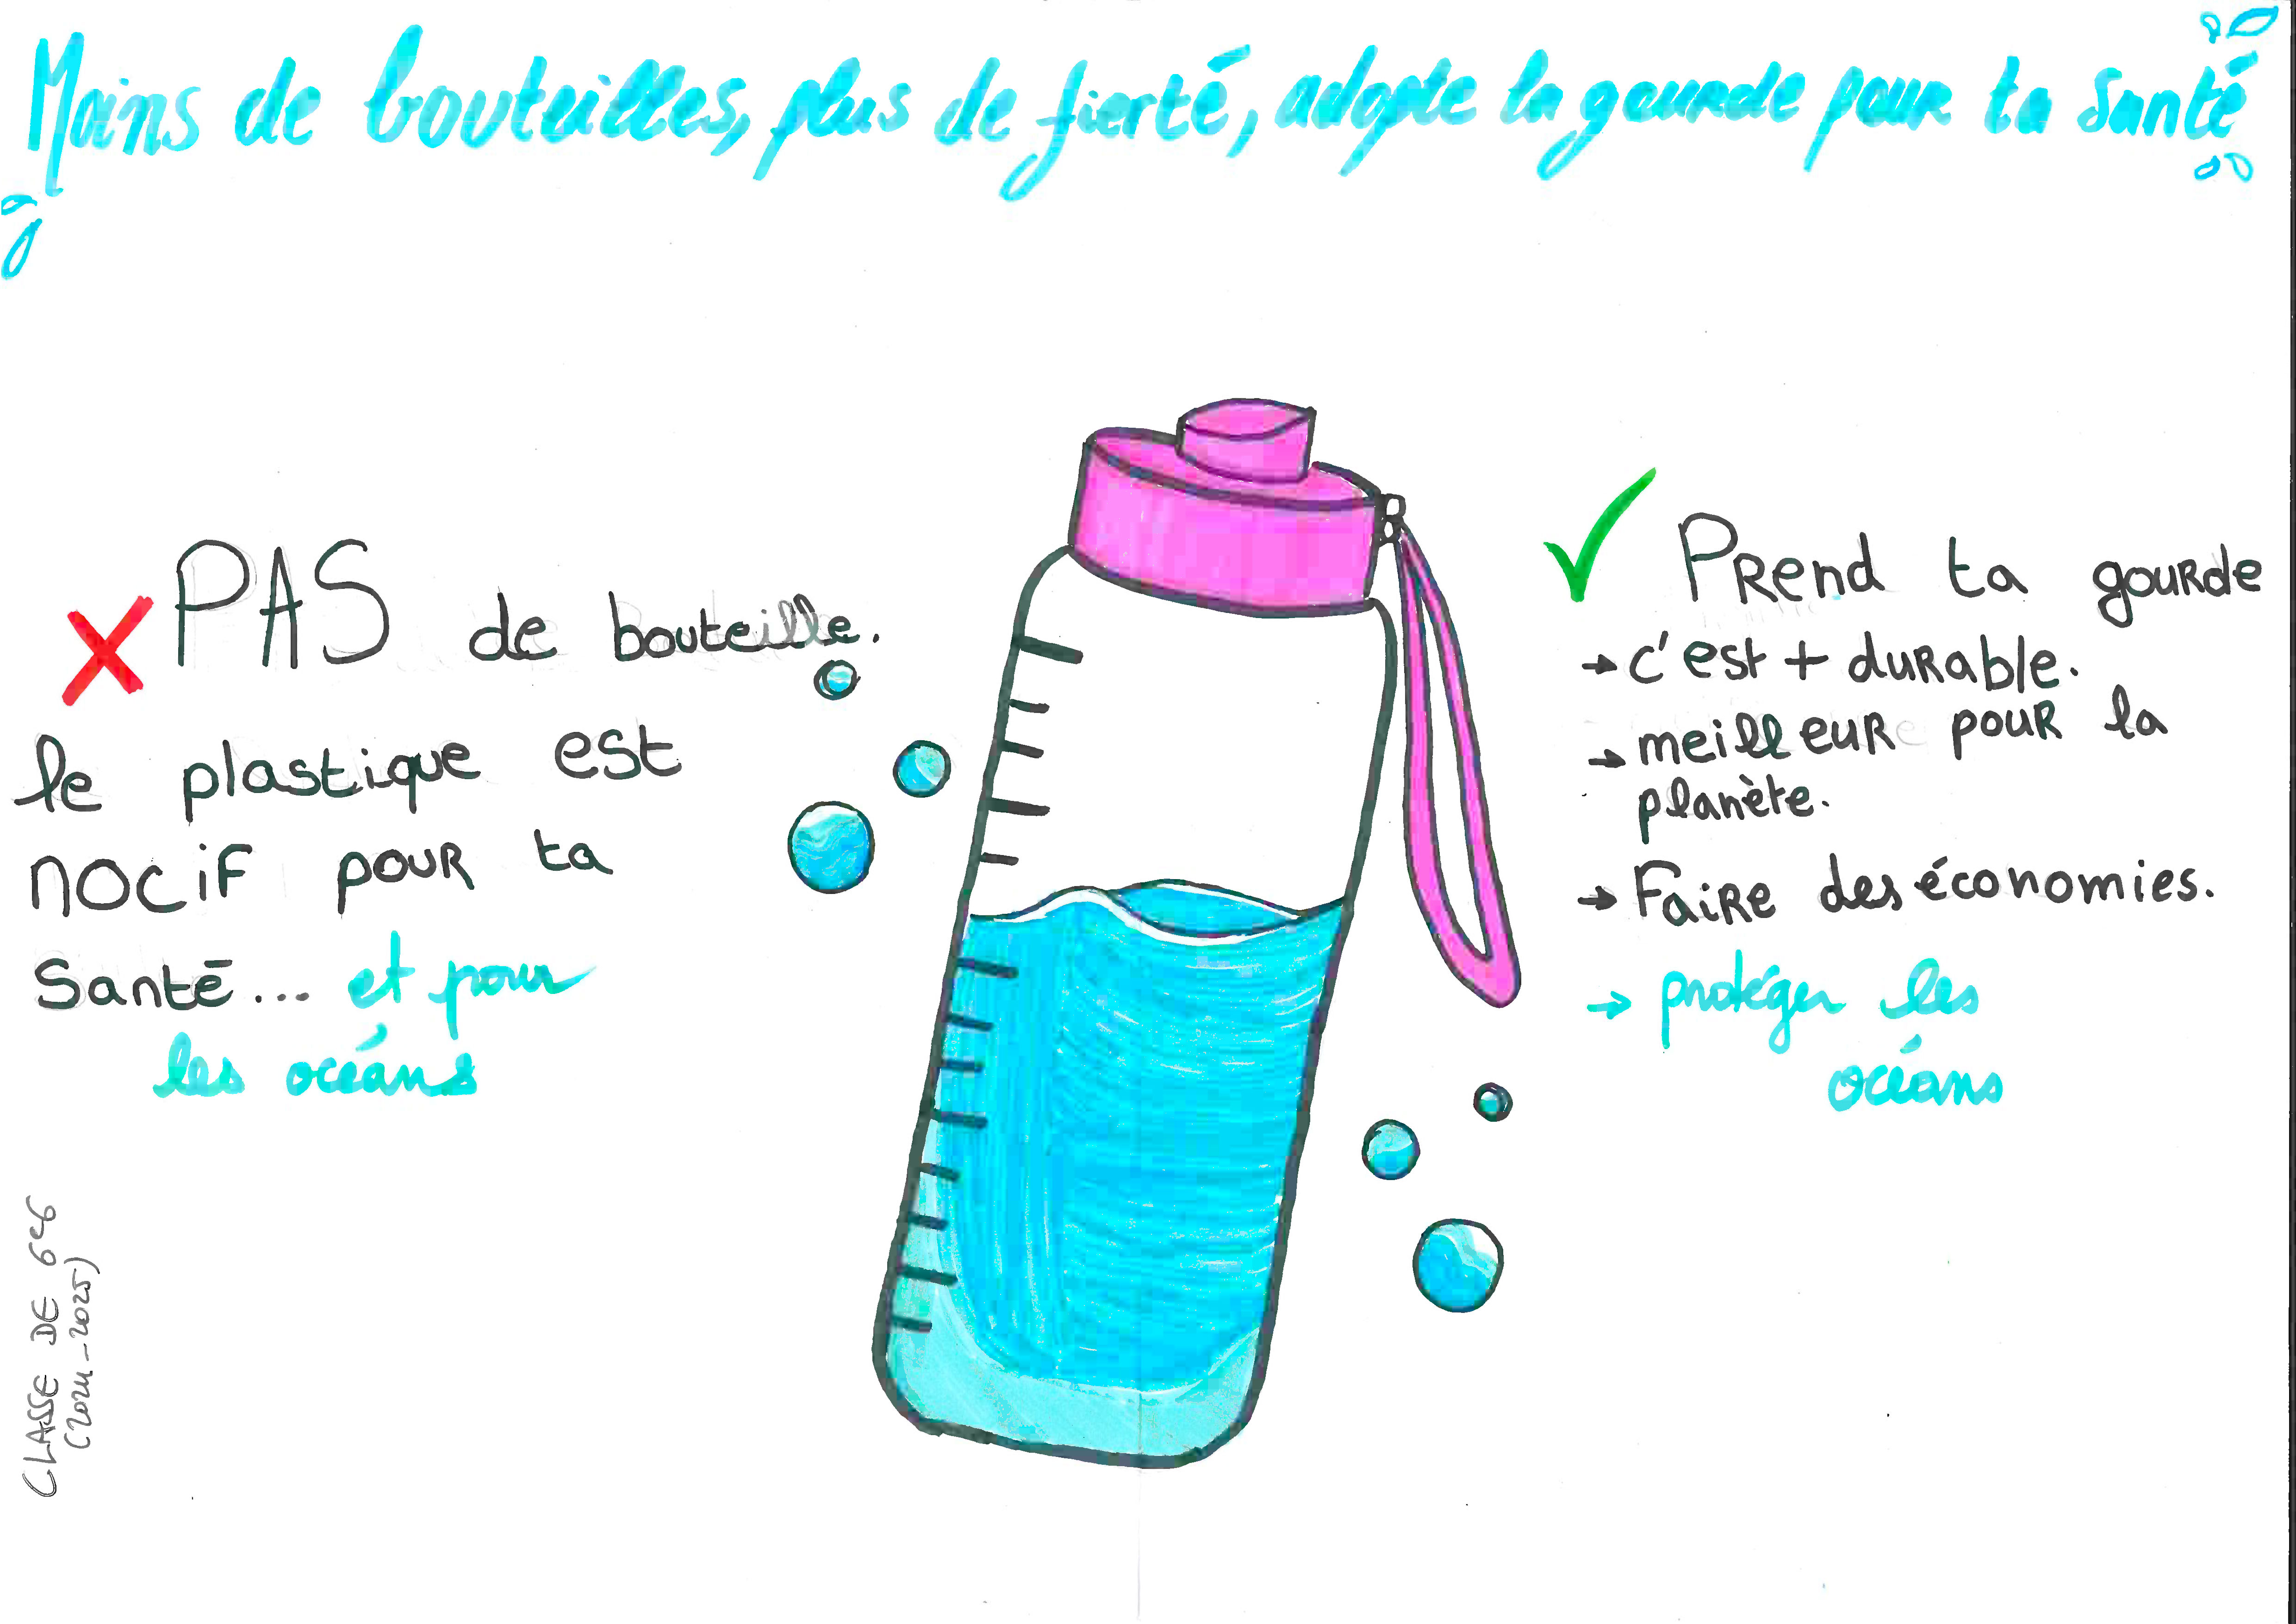 Moins de bouteilles, plus de fierté, adopte la gourde pour ta santé
PAS de bouteille.
le plastique est
nocif pour ta
Santé... et pour
les océans
Prend ta gourde
→ c'est + durable.
→ meilleur pour la
planète.
→ Faire des économies.
→ protéger les
océans
CLASSE DE 6e6
(2024-2025)